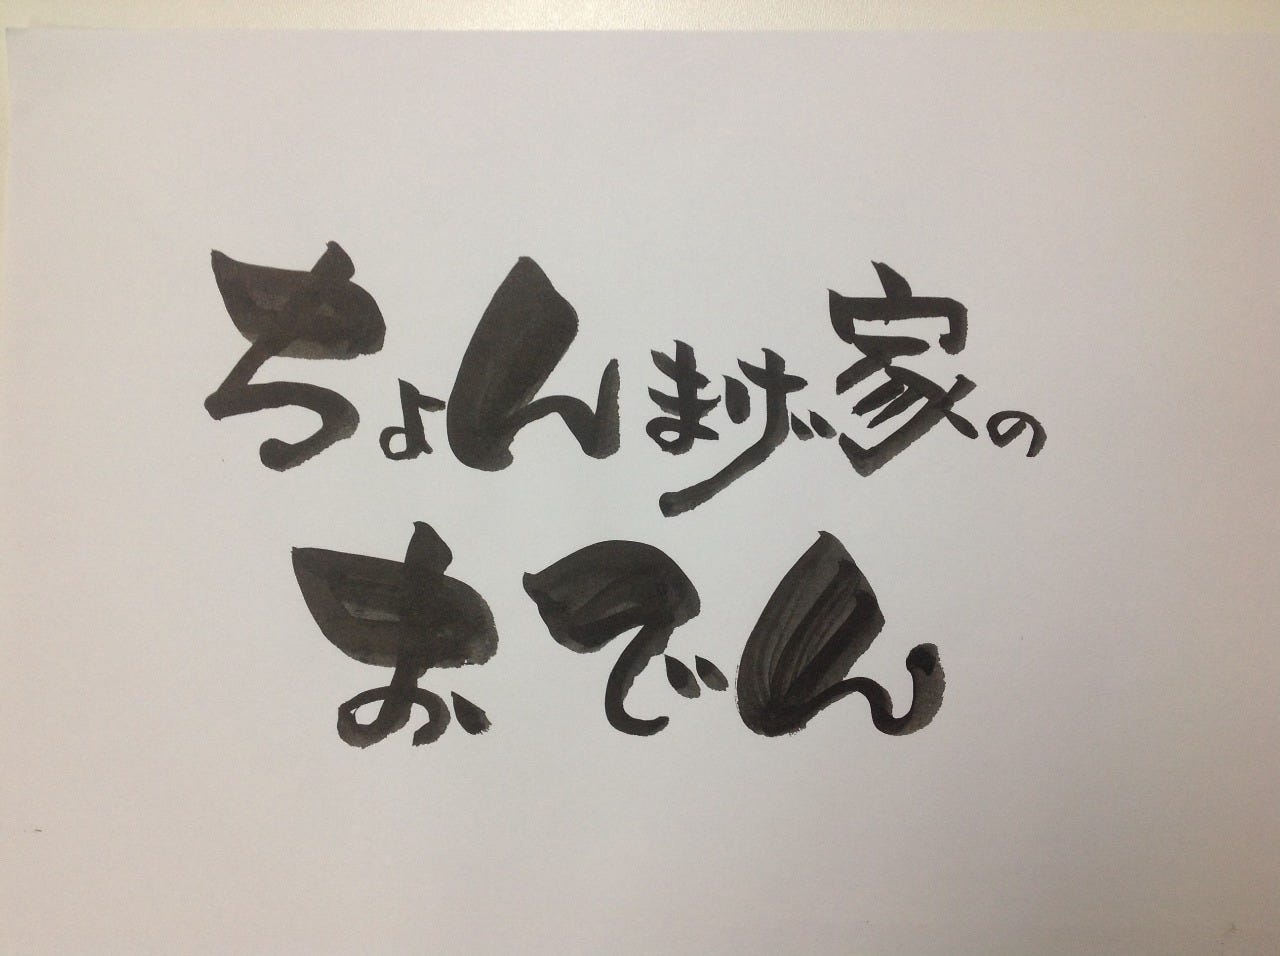 ちょんまげ家の
おでん